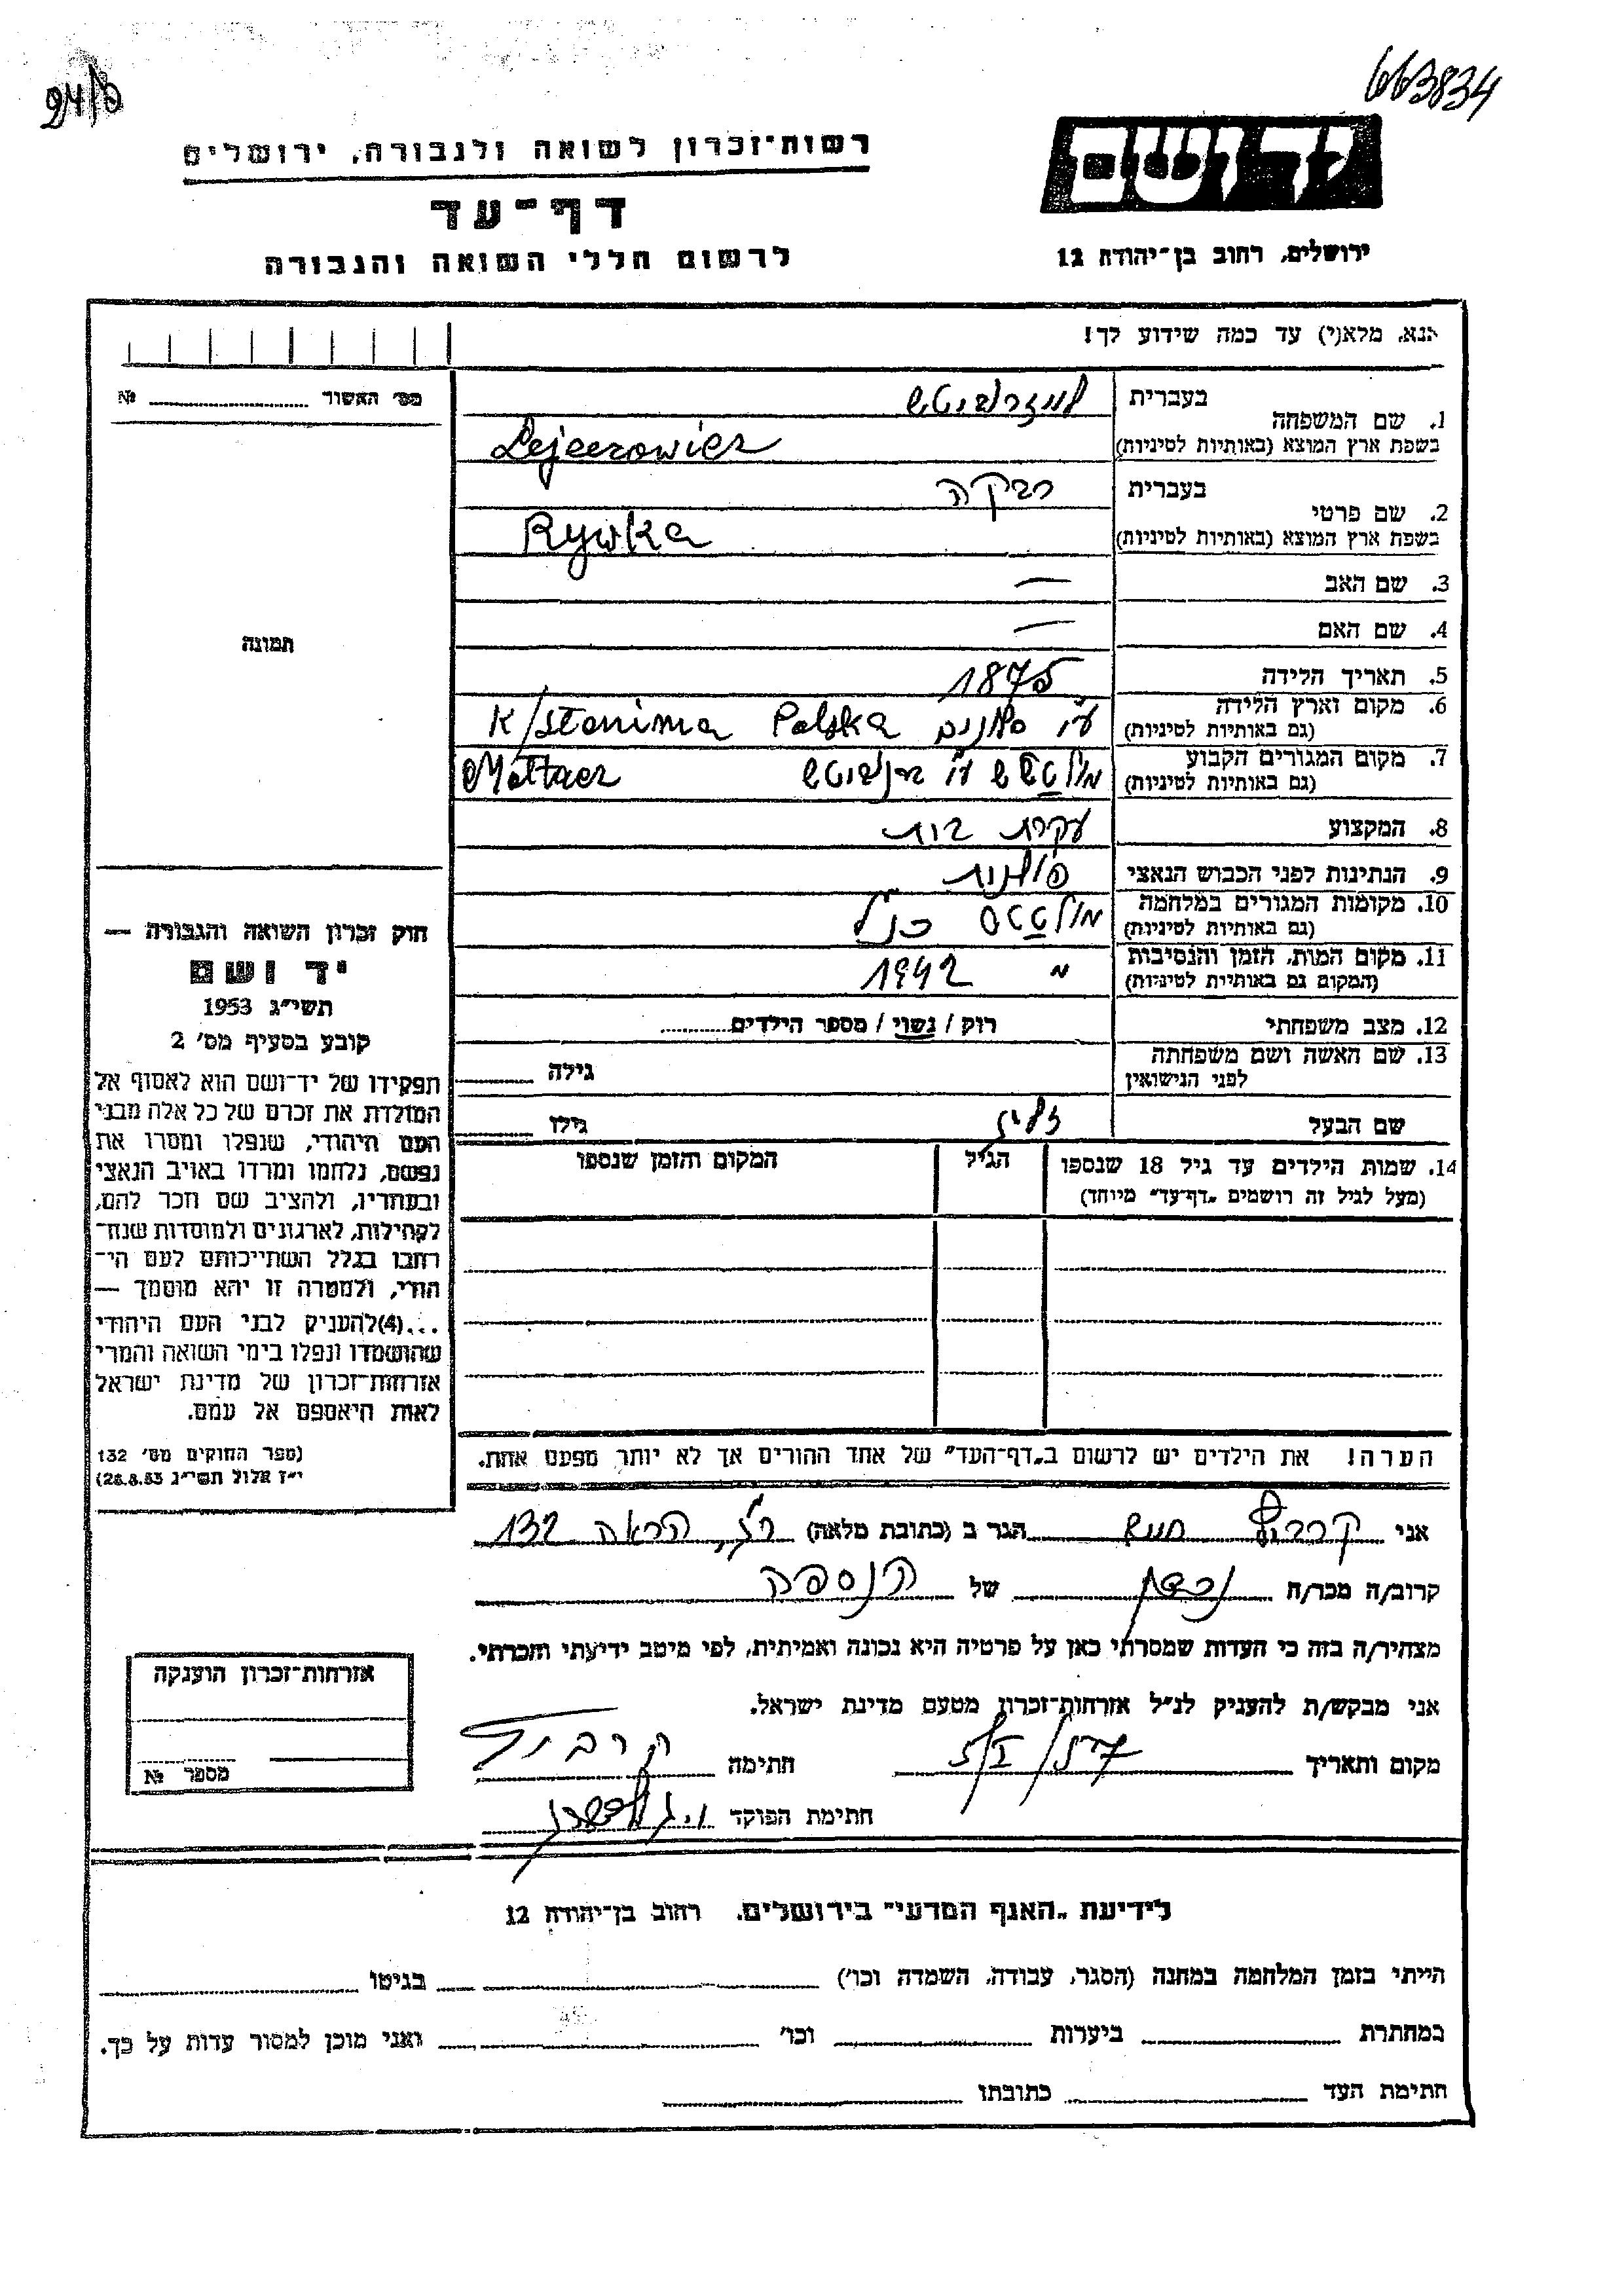 663834
רשות־זכרון לשואה ולגבורה, ירושלים
דף־עד
לרשום חללי השואה והגבורה
ידושם
ירושלים, רחוב בן־יהודה 12
אנא, מלא(י) עד כמה שידוע לך!
מס׳ האשור №
תמונה
1. שם המשפחה
בעברית לייזרוביטש
בשפת ארץ המוצא (באותיות לטיניות) Lejzerowicz
2. שם פרטי
בעברית רבקה
בשפת ארץ המוצא (באותיות לטיניות) Rywka
3. שם האב —
4. שם האם —
5. תאריך הלידה 1875
6. מקום וארץ הלידה
(גם באותיות לטיניות) ע״י Polska K/Stonima
7. מקום המגורים הקבוע
(גם באותיות לטיניות) ע״י
8. המקצוע עקרת בית
9. הנתינות לפני הכבוש הנאצי פולנית
10. מקומות המגורים במלחמה
(גם באותיות לטיניות) כנ״ל
11. מקום המות, הזמן והנסיבות
(המקום גם באותיות לטיניות) " 1942
12. מצב משפחתי רוק / נשוי / מספר הילדים
13. שם האשה ושם משפחתה
לפני הנישואין גילה
שם הבעל זליג גילו
14. שמות הילדים עד גיל 18 שנספו הגיל המקום והזמן שנספו
(מעל לגיל זה רושמים „דף־עד״ מיוחד)
הערה! את הילדים יש לרשום ב„דף־העד״ של אחד ההורים אך לא יותר מפעם אחת.
חוק זכרון השואה והגבורה —
יד ושם
תשי״ג 1953
קובע בסעיף מס׳ 2
תפקידו של יד־ושם הוא לאסוף אל
המולדת את זכרם של כל אלה מבני
העם היהודי, שנפלו ומסרו את
נפשם, נלחמו ומרדו באויב הנאצי
ובעוזריו, ולהציב שם וזכר להם,
לקהילות, לארגונים ולמוסדות שנח־
רבו בגלל השתייכותם לעם הי־
הודי, ולמטרה זו יהא מוסמך —
...(4) להעניק לבני העם היהודי
שהושמדו ונפלו בימי השואה והמרי
אזרחות־זכרון של מדינת ישראל
לאות היאספם אל עמם.
(ספר החוקים מס׳ 132
י״ז אלול תשי״ג 28.8.53)
אני הגר ב (כתובת מלאה) ר״ג, הרא״ה 132
קרוב/ה מכר/ה נכדתן של הנספה
מצהיר/ה בזה כי העדות שמסרתי כאן על פרטיה היא נכונה ואמיתית, לפי מיטב ידיעתי והכרתי.
אני מבקש/ת להעניק לנ״ל אזרחות־זכרון מטעם מדינת ישראל.
מקום ותאריך חתימה
חתימת הפוקד
אזרחות־זכרון הוענקה
מספר №
לידיעת „האגף המדעי״ בירושלים, רחוב בן־יהודה 12
הייתי בזמן המלחמה במחנה (הסגר, עבודה, השמדה וכו׳) בגיטו
במחתרת ביערות וכו׳ ואני מוכן למסור עדות על כך.
חתימת העד כתובתו